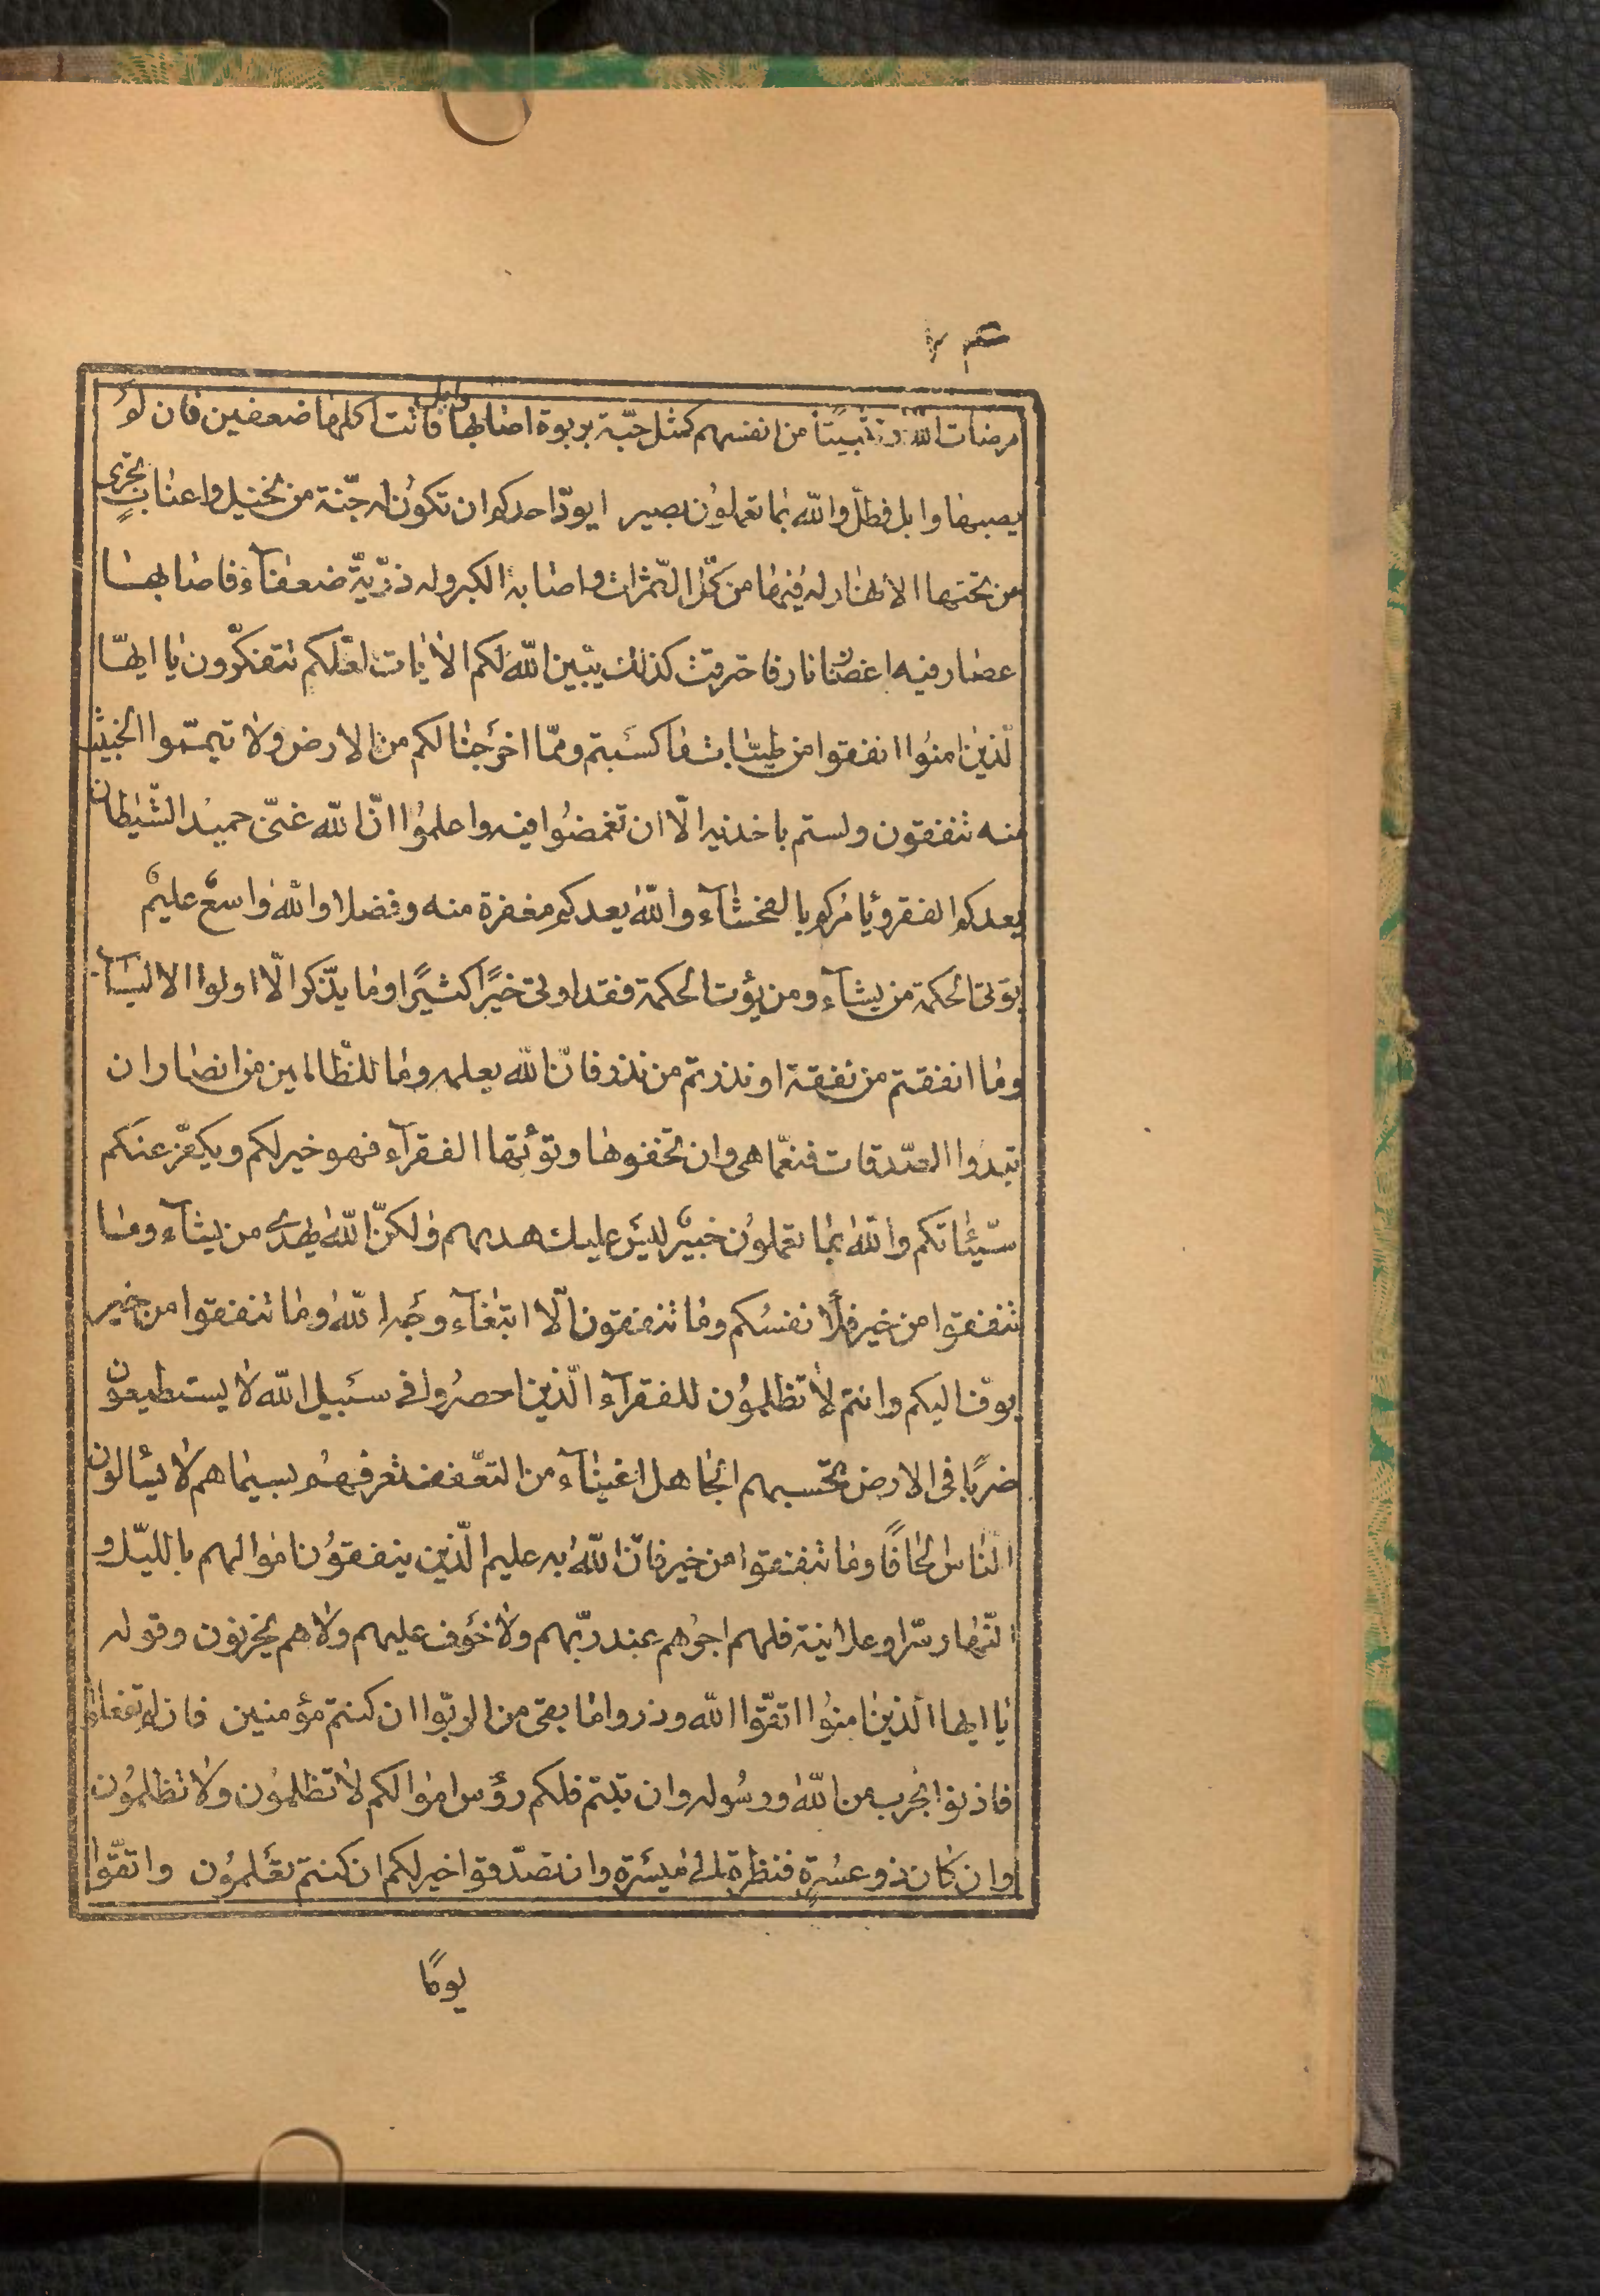 مرضات الله وتثبيتًا من انفسهم كمثل حبّة بربوة اصابها وابل فاتت اكلها ضعفين فان لو
يصبها وابل فطلّ والله بما تعملون بصير ايودّ احدكم ان تكون له جنّة من نخيل واعناب تجرى
من تحتها الانهار له فيها من كلّ الثّمرات واصابه الكبر وله ذرّيّة ضعفآء فاصابها
عصار فيه اعصار نار فاحترقت كذلك يبّين الله لكم الايات لعلّكم تتفكّرون يا ايهّا
لّذين امنوا انفقوا من طيّبات ما كسبتم وممّا اخرجنا لكم من الارض ولا تيمّموا الخبيث
منه تنفقون ولستم باخذيه الّا ان تغمضوا فيه واعلموا انّ الله غنىّ حميد الشّيطان
يعدكم الفقر ويأمركم بالفحشآء والله يعدكم مغفرة منه وفضلا والله واسعٌ عليمٌ
يؤتى الحكمة من يشآء ومن يؤت الحكمة فقد اوتى خيرًا كثيرًا وما يذّكر الّا اولوا الالباب
وما انفقتم من نفقة او نذرتم من نذر فانّ الله يعلمه وما للظّالمين من انصار ان
تبدوا الصّدقات فنعمّا هى وان تخفوها وتؤتها الفقرآء فهو خير لكم ويكفّر عنكم
سيّئاتكم والله بما تعملون خبيرٌ ليس عليك هديهم ولكنّ الله يهدى من يشآء وما
تنفقوا من خير فلانفسكم وما تنفقون الّا ابتغآء وجه الله وما تنفقوا من خير
يوفّ اليكم وانتم لا تظلمون للفقرآء الّذين احصروا فى سبيل الله لا يستطيعون
ضربًا فى الارض تحسبهم الجاهل اغنيآء من التعفّف تعرفهم بسيماهم لا يسئالون
النّاس الحافًا وما تنفقوا من خير فانّ الله به عليم الّذين ينفقون اموالهم بالليّل و
النّهار سّرا وعلانية فلهم اجرهم عند ربّهم ولا خوف عليهم ولا هم يحزنون وقوله
يا ايها الّذين امنوا اتقّوا الله وذروا ما بقى من الربّوا ان كنتم مؤمنين فان لم تفعلوا
فاذنوا بحرب من الله ورسوله وان تبتم فلكم رؤس اموالكم لا تظلمون ولا تظلمون
وان كان ذو عسُرةٍ فنظرة الى ميسرة وان تصدّقوا خير لكم ان كنتم تعلمون واتقّوا
يومًا